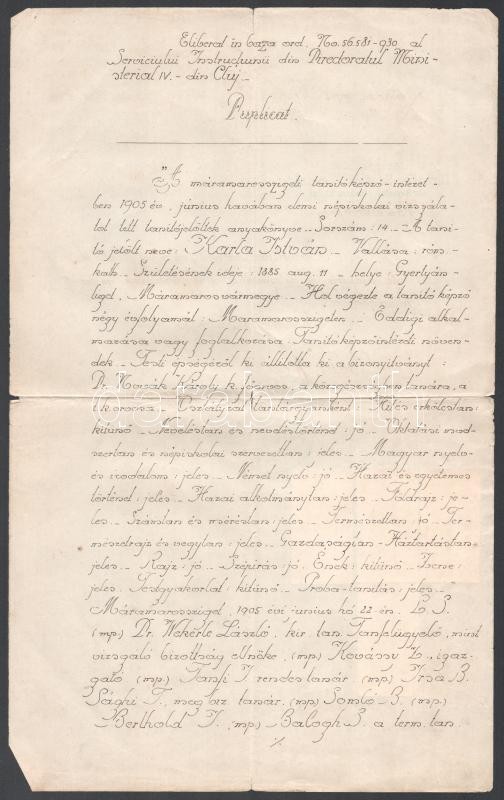 Eliberat in baza ord. No. 56.581-930 al
Serviciului Instrucţiunii din Directoratul Mini-
sterial IV.- din Cluj.
Duplicat.
"A máramarosszigeti tanitóképző-intézet-
ben 1905 év június havában elemi népiskolai vizsgála-
tot tett tanitójelöltek anyakönyve. Sorszám: 14. A tani-
tó jelölt neve: Karla István. Vallása: róm.
kath. Születésének ideje: 1885 aug. 11 helye: Gyertyán-
liget, Máramarosvármegye. Hol végezte a tanitóképző
négy évfolyamát: Maramarosszigeten. Eddigi alkal-
mazása vagy foglalkozása: Tanitóképzőintézeti növen-
dék. Testi épségéről ki állította ki a bizonyitványt:
Dr. Novák Károly k. orvos, a közegészségtan tanára, a
t.k. orvosa. Osztályzat tantárgyanként: Hit és erkölcstan:
kitűnő. Neveléstan és neveléstörténet: jó. Oktatási mód-
szertan és népiskolai szervezettan: jeles. Magyar nyelv
és irodalom: jeles. Német nyelv: jó. Hazai és egyetemes
történet: jeles. Hazai alkotmánytan: jeles. Földrajz: je-
les. Számtan és méréstan: jeles. Természettan: jó. Ter-
mészetrajz és vegytan: jeles. Gazdaságtan-Háztartástan:
jeles. Rajz: jó. Szépirás: jó. Ének: kitűnő. Zene:
jeles. Testgyakorlat: kitűnő. Próba-tanitás: jeles.
Máramarossziget, 1905 évi junius hó 22-én. L. S.
(mp.) Dr. Wekerle László, kir. tan. Tanfelügyelő, mint
vizsgáló bizottság elnöke, (mp.) Kovássy Z., igaz-
gató (mp.) Tanfi I. rendes tanár (mp.) Irsa B.
Sághi T., megbiz. tanár. (mp.) Somló B. (mp.)
Berthold I. (mp.) Balogh S. a term. tan.
./.
darabanth